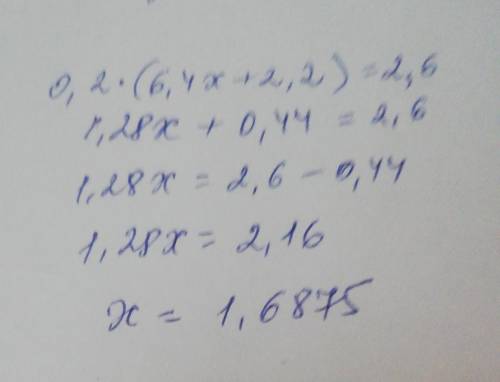 0,2·(6,4x+2,2)=2,6
1,28x + 0,44 = 2,6
1,28x = 2,6 - 0,44
1,28x = 2,16
x = 1,6875